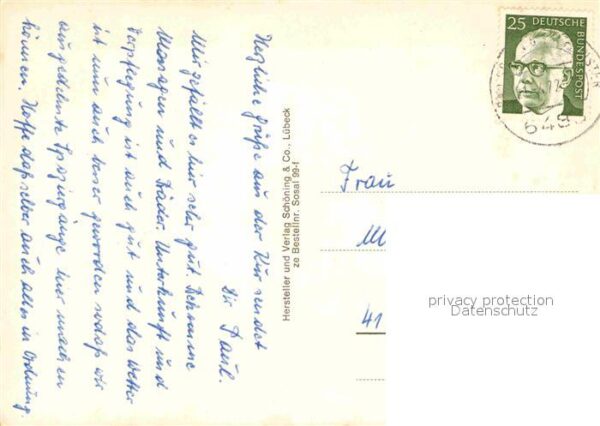 Herzliche Grüße aus der Kur sendet
Dir Paul.
Mir gefällt es hier sehr gut. Bekomme
Massagen und Bäder. Unterkunft und
Verpflegung ist auch gut und das Wetter
ist nun auch besser geworden sodaß wir
ausgedehnte Spaziergänge hier machen
können. Hoffe daß selber auch alles in Ordnung.
Hersteller und Verlag Schöning & Co., Lübeck
ze Bestellnr. Sosal 99-f
25 DEUTSCHE
BUNDESPOST
Frau
M
41
privacy protection
Datenschutz